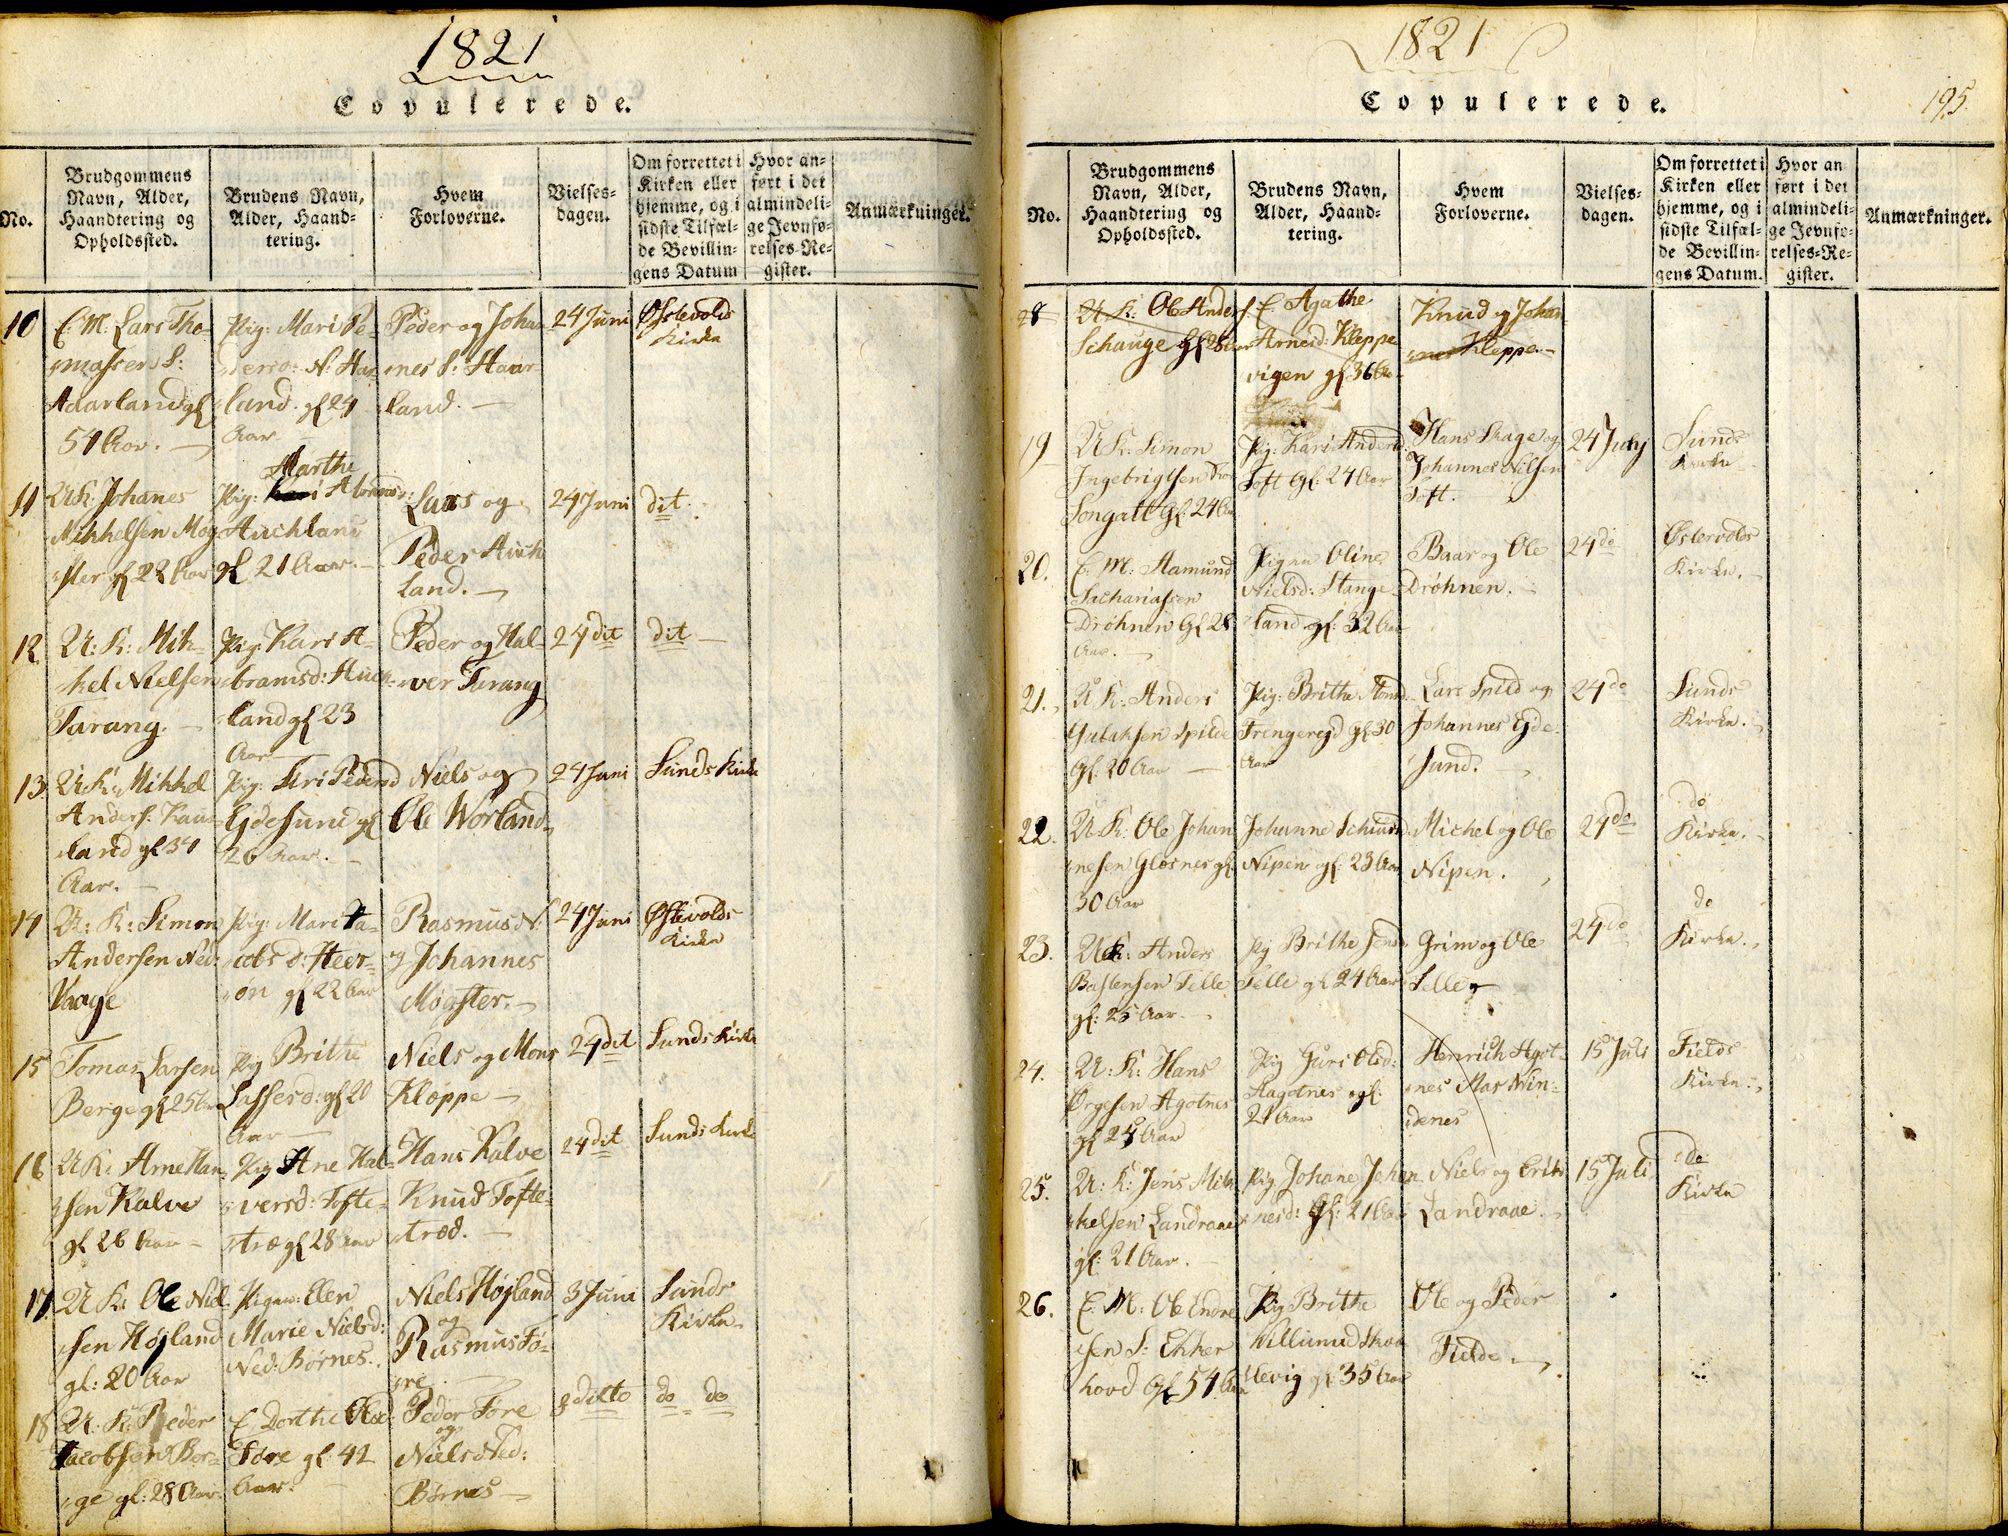 1821
Copulerede.
No.
Brudgommens
Navn, Alder,
Haandtering og
Opholdssted.
Brudens Navn,
Alder, Haand=
tering.
Hvem
Forloverne.
Vielses=
dagen.
Om forrettet i
Kirken eller
hjemme, og i
sidste Tilfæl=
de Bevillin=
gens Datum
Hvor an=
ført i det
almindeli=
ge Jevnfø=
relses=Re=
gister.
Anmærkninger.
10
E. M. Lars Tho
masser S:
Aarland gl
54 Aar.
Pig: Mari Pe
N: Haa
land. gl 24
Aar
Peder og Johan
nes S: Haar
land.
24 Juni
Østevolds
Kirke
11
UK: Johanes
Mikkelsen Møg
ster gl 22 Aar
Marthe
Pig:
Auchland
gl 21 Aar.
Lars og
Peder Auch
land.
24 Juni
dit
12
U: K: Mik
kel Nielsen
Tarang.
Pig: Kari A
bramsd: Huck
land gl 23
Aar
Peder og Hal
ver Tarang
24 dit
dit
13.
U K: Mikkel
Anders: Kaus
land gl 34
Aar.
Pig: Siri Pedersd
Gdesund gl
26 Aar.
Niels og
Ole Worland
24 Juni
Sunds Kirke
14
U: K: Simon
Andersen Ned:
Vaage
Pig: Mari Ja
cobs d: Heer
øn gl 22 Aar
Rasmus N:
og Johannes
Møgster.
24 Juni
Østevolds
Kirke
15
Tomas Larsen
Berge gl 25 Aar
Pig Brithe
Lassesd: gl 20
Aar
Niels og Mons
Kløppe
24 dit
Sunds Kirke
16
U K: Arne Han
sen Kalve
gl 26 Aar
Pig Ane Hal
versd: Tofte
træ gl 28 Aar
Hans Kalve
Knud Tofte
træd.
24 dit
Sunds Kirke
17.
U K: Ole Niel
sen Højland
gl: 20 Aar
Pigen: Elen
Marie Nielsd:
Ned: Børnes.
Niels Højland
og
Rasmus Tø
re
3 Juni
Sunds
Kirke
18
U. K: Peder
Jacobsen Bor
ge gl: 28 Aar
E Dorthe Olsd:
Tøre gl: 42
Aar.
Peder Tøre
og
Niels Ned:
Børnes
ditto
do do
1821
195.
Copulerede.
No.
Brudgommens
Navn, Alder,
Haandtering og
Opholdssted.
Brudens Navn,
Alder, Haand=
tering.
Hvem
Forloverne.
Vielses=
dagen.
Om forrettet i
Kirken eller
hjemme, og i
sidste Tilfæl=
de Bevillin=
gens Datum.
Hvor an
ført i det
almindeli=
ge Jevnfø=
relses=Re=
gister.
Anmærkninger.
U. K: Ole Anders:
Schauge gl 28 Aar
E. Agathe
Arnesd: Kleppe
vigen gl 36 Aar
Knud og Johan
nes Kleppe
19
U K: Simon
Ingebrigtsen
Songatt gl 24 Aar
Pig: Kari Andersd
Toft gl: 24 Aar
Hans Skage og
Johannes Nilsen
Toft.
24 July
Sunds
Kirke
20.
E. M: Aamund
Sachariassen
Drøhnen gl 28
Aar.
Pigen Oline
Nielsd: Stange
land gl: 32 Aar
Baar og Ole
Drøhnen.
24 do
Østevolds
Kirke.
21.
U K: Anders
Gulaksen Spilde
gl: 20 Aar
Pig: Brithe
Trengereid gl 30
Aar
Lars Spild og
Johannes Gde
sund.
24 do
Sunds
Kirke.
22.
U. K: Ole Johan
nesen Glesnes gl
30 Aar
Johanne
Nipen gl. 23 Aar
Michel og Ole
Nipen.
24 do
do
Kirke.
23.
U K: Anders
Bastensen Telle
gl: 25 Aar.
Pig Brithe
Telle gl 24 Aar
Grim og Ole
Telle
24 do
do
Kirke.
24.
U: K: Hans
Ørgesen Agotnes
gl 24 Aar
Pig Guri Olsd:
Aagotnes gl:
21 Aar
Henrich Agot
nes Mas Win
denes
15 Juli
Fields
Kirke.
25.
U: K: Jens Mik
kelsen Landraae
gl: 21 Aar.
Pig Johane Johan
nesd: gl: 21 Aar
Niels og Erik
Landraae.
15 Juli
do
Kirke
26.
E. M: Ole Endre
sen S: Ekker
hovd gl 54 Aar
Pig Brithe
Villumsd Skaa
levig gl 35 Aar
Ole og Peder
Fielde.